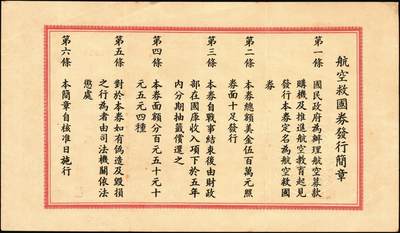 航空救國券發行簡章
第一條 國民政府為辦理航空募款
購機及推進航空教育起見
發行本券定名為航空救國
券
第二條 本券總額美金伍百萬元照
券面十足發行
第三條 本券自戰事結束後由財政
部在國庫收入項下於五年
內分期抽籤償還之
第四條 本券面額分百元五十元十
元五元四種
第五條 對於本券如有偽造及毀損
之行為者由司法機關依法
懲處
第六條 本簡章自核准日施行